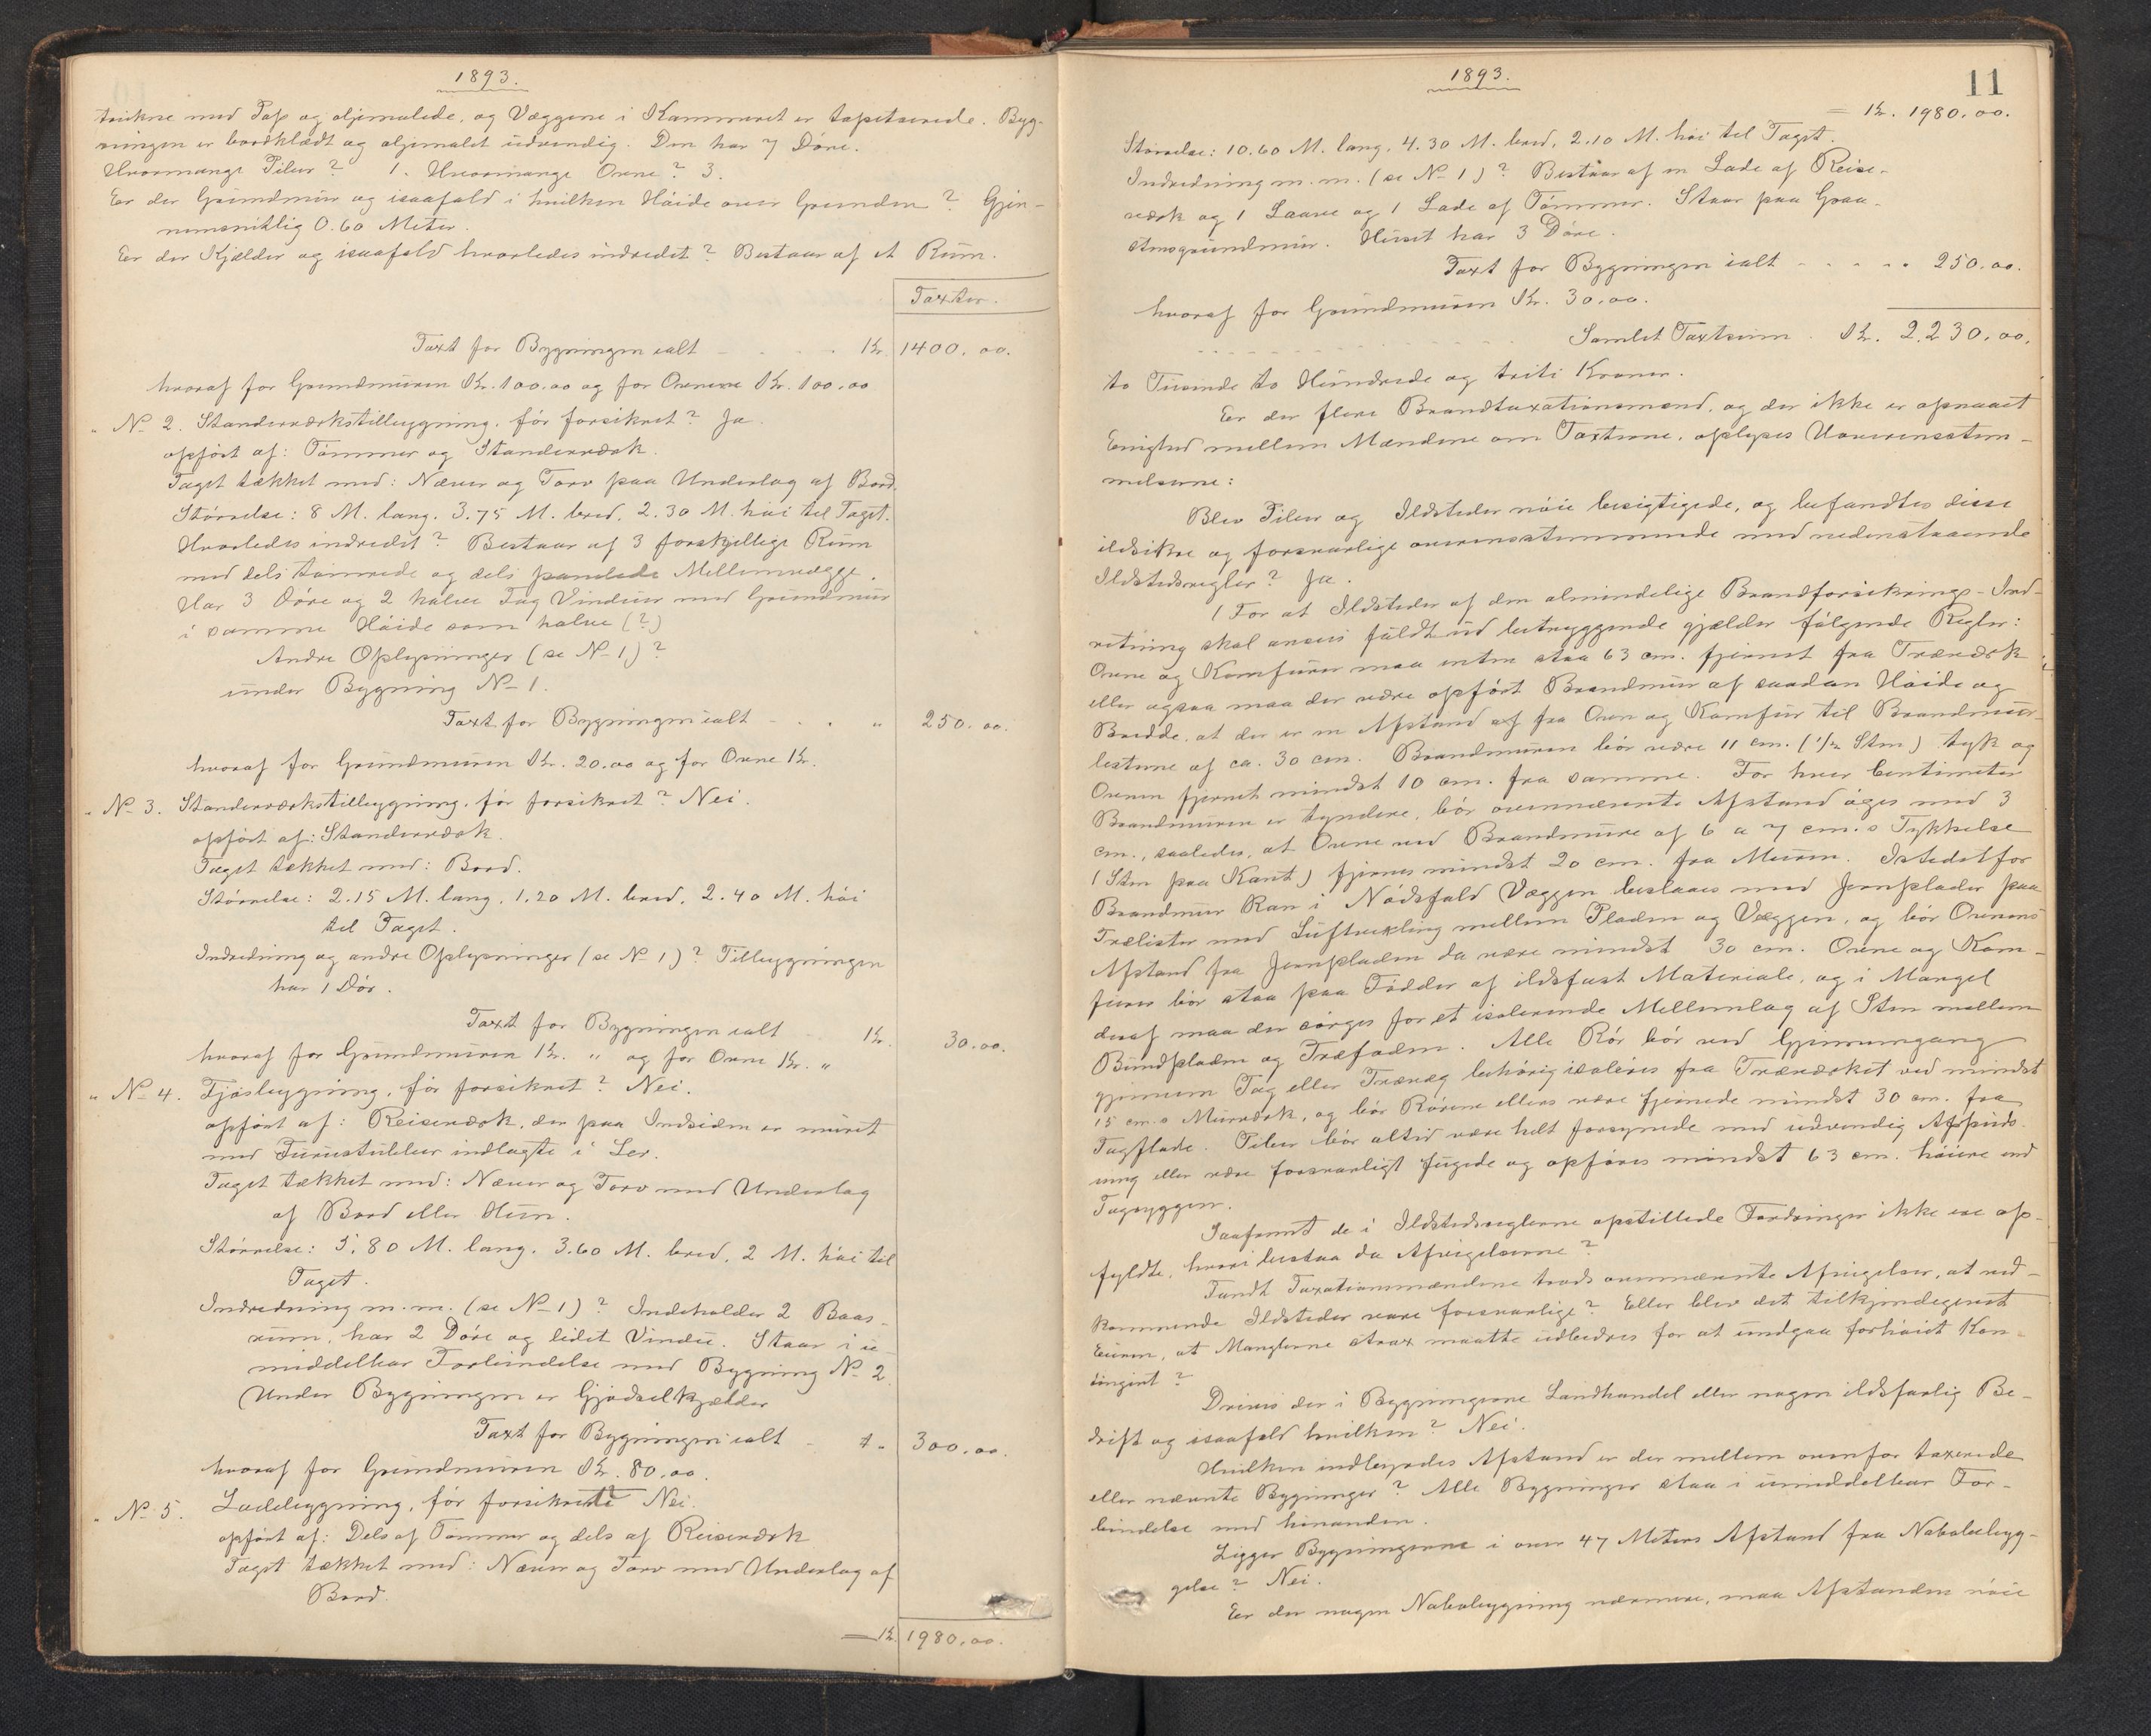 1893.
trukne med Pap og oljemalede, og Væggene i Kammeret er tapetserede. Byg-
ningen er bordklædt og oljemalet udvendig. Den har 7 Døre.
Hvormange Piber? 1. Hvormange Ovne? 3.
Er der Grundmur og isaafald i hvilken Høide over Grunden? Gjen-
nemsnitlig 0.60 Meter.
Er der Kjælder og isaafald hvorledes indredet? Bestaar af et Rum.
Taxter.
Taxt for Bygningen ialt - - - Kr. 1400.00.
hvoraf for Grundmuren Kr. 100.00 og for Ovnene Kr. 100.00
" No 2. Standerværkstilbygning, før forsikret? Ja.
opført af: Tømmer og Standerværk.
Taget tækket med: Næver og Torv paa Underlag af Bord.
Størrelse: 8 M. lang, 3.75 M. bred, 2.30 M. høi til Taget.
Hvorledes indredet? Bestaar af 3 forskjellige Rum
med dels tømrede og dels panelede Mellemvægge.
Har 3 Døre og 2 halve Fag Vinduer med Grundmur
i samme Høide som halve (?)
Andre Oplysninger (se No 1)?
under Bygning No 1.
Taxt for Bygningen ialt - . . " 250.00.
hvoraf for Grundmuren Kr. 20.00 og for Ovne Kr.
" No 3. Standerværkstilbygning, før forsikret? Nei.
opført af: Standerværk.
Taget tækket med: Bord.
Størrelse: 2.15 M. lang, 1.20 M. bred, 2.40 M. høi
til Taget.
Indredning og andre Oplysninger (se No 1)? Tilbygningen
har 1 Dør.
Taxt for Bygningen ialt - Kr. 30.00.
hvoraf for Grundmuren Kr. " og for Ovne Kr. "
" No 4. Fjøsbygning, før forsikret? Nei.
opført af: Reisværk, der paa Indsiden er muret
med Furustubber indlagte i Ler.
Taget tækket med: Næver og Torv med Underlag
af Bord eller Hun.
Størrelse: 5.80 M. lang, 3.60 M. bred, 2 M. høi til
Taget.
Indredning m.m. (se No 1)? Indeholder 2 Baas-
rum, har 2 Døre og lidet Vindu. Staar i u-
middelbar Forbindelse med Bygning No 2.
Under Bygningen er Gjødselkjælder
Taxt for Bygningen ialt - 300.00.
hvoraf for Grundmuren Kr. 80.00.
" No 5. Ladebygning, før forsikret? Nei.
opført af: Dels af Tømmer og dels af Reisværk
Taget tækket med: Næver og Torv med Underlag af
Bord.
= Kr. 1980.00.
1893.
11
= Kr. 1980.00.
Størrelse: 10.60 M. lang, 4.30 M. bred, 2.10 M. høi til Taget.
Indredning m.m. (se No 1)? Bestaar af en Lade af Reis-
værk og 1 Laave og 1 Lade af Tømmer. Staar paa Graa-
stensgrundmur. Huset har 3 Døre.
Taxt for Bygningen ialt - - - - 250.00.
hvoraf for Grundmuren Kr. 30.00.
Samlet Taxtsum . Kr. 2.230.00.
to Tusinde to Hundrede og triti Kroner.
Er der flere Brandtaxationsmænd, og der ikke er opnaaet
Enighed mellem Mændene om Taxterne, oplyses Uoverensstem-
melserne:
Blev Piber og Ildsteder nøie besigtigede, og befandtes disse
ildsikre og forsvarlige overensstemmende med nedenstaaende
Ildstedsregler? Ja.
(For at Ildsteder af den almindelige Brandforsikrings-Ind-
retning skal ansees fuldt ud betryggende gjælder følgende Regler:
Ovne og Komfurer maa enten staa 63 cm. fjernet fra Træværk
eller ogsaa maa der være opført Brandmur af saadan Høide og
Bredde, at der er en Afstand af fra Ovn og Komfur til Brandmur-
listerne af ca. 30 cm. Brandmuren bør være 11 cm. (1/2 Sten) tyk og
Ovnen fjernet mindst 10 cm. fra samme. For hver Centimeter
Brandmuren er tyndere, bør ovennævnte Afstand øges med 3
cm., saaledes, at Ovne ved Brandmure af 6 a 7 cm.s Tykkelse
(Sten paa Kant) fjernes mindst 20 cm. fra Muren. Istedetfor
Brandmur kan i Nødsfald Væggen beslaaes med Jernplader paa
Trælister med Luftvexling mellem Pladen og Væggen, og bør Ovnens
Afstand fra Jernpladen da være mindst 30 cm. Ovne og Kom-
furer bør staa paa Fødder af ildsfast Materiale, og i Mangel
deraf maa der sørges for et isolerende Mellemlag af Sten mellem
Bundpladen og Træfoden. Alle Rør bør ved Gjennemgang
gjennem Tag eller Trævæg behørig isoleres fra Træværket ved mindst
15 cm.s Murværk, og bør Rørene ellers være fjernede mindst 30 cm. fra
Tagflade. Piber bør altid være helt forsynede med udvendig Afpuds-
ning eller være forsvarligt fugede og opføres mindst 63 cm. høiere end
Tagryggen.
Saafremt de i Ildstedsreglerne opstillede Fordringer ikke ere op-
fyldte, hvori bestaa da Afvigelserne?
Fandt Taxationsmændene trods ovennævnte Afvigelser, at ved-
kommende Ildsteder vare forsvarlige? Eller blev det tilkjendegivet
Eieren, at Manglerne strax maatte udbedres for at undgaa forhøiet Kon-
tingent?
Drives der i Bygningerne Landhandel eller nogen ildsfarlig Be-
drift og isaafald hvilken? Nei.
Hvilken indbyrdes Afstand er der mellem ovenfor taxerede
eller nævnte Bygninger? Alle Bygninger staa i umiddelbar For-
bindelse med hinanden.
Ligger Bygningerne i over 47 Meters Afstand fra Nabobebyg-
gelse? Nei.
Er der nogen Nabobygning nærmere, maa Afstanden nøie